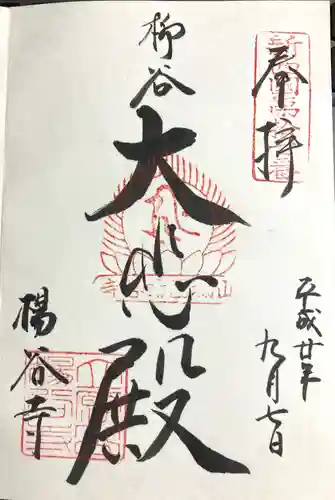 奉拝
柳谷
大悲殿
平成廿年
九月七日
楊谷寺